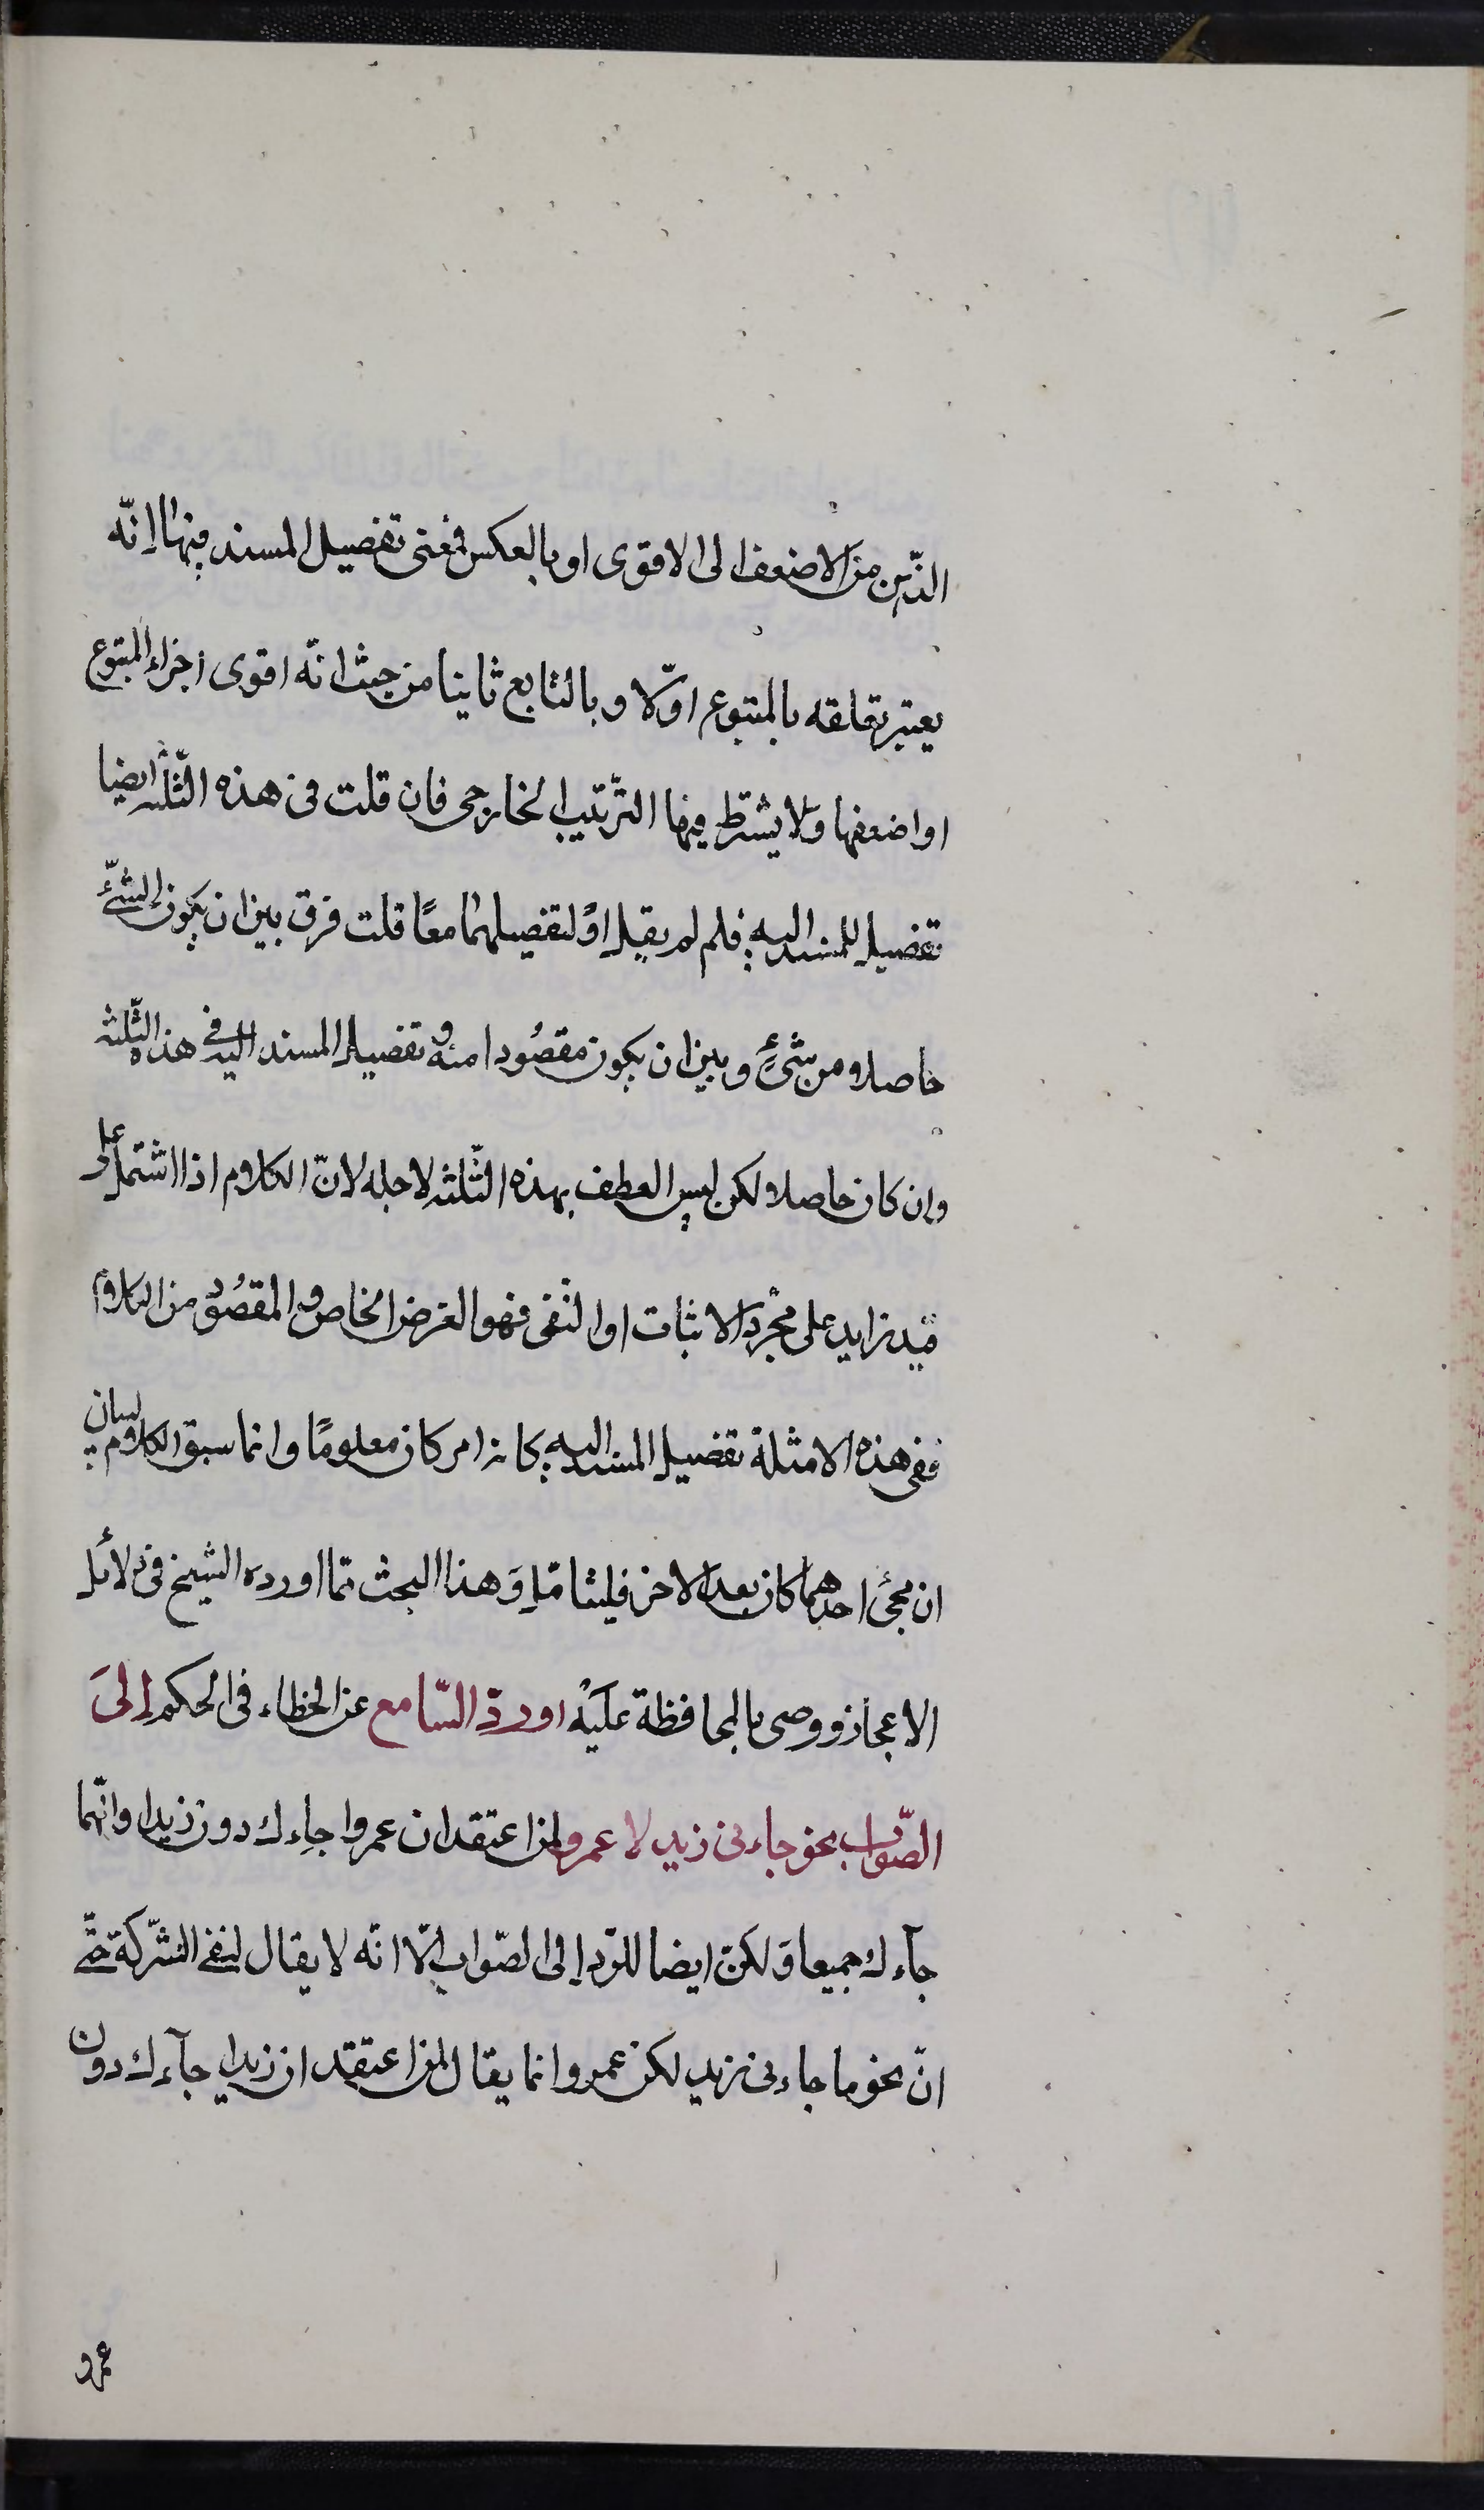 الذّهن من الاضعف الى الاقوى او بالعكس فمعنى تفصيل المسند فيها انّه
يعتبر تعلقه بالمتبوع اوّلا و بالتابع ثانيا من حيث انّه اقوى اجزاء المتبوع
او اضعفها ولا يشترط فيها التّرتيب الخارجى فان قلت فى هذه الثّلثه ايضا
تفصيل للمسند اليه فلم لم يقل او لتفصيلهما معًا قلت فرق بين ان يكون الشّئ
حاصلا من شئٍ و بين ان يكون مقصُودا منه و تفصيل المسند اليه فى هذه الثّلثه
وان كان حاصلا لكن ليس العطف بهذه الثّلثه لاجله لانّ الكلام اذا اشتمل على
قيد زايد على مجّرد الاثبات او النّفى فهو الغرض الخاص و المقصُود من الكلام
ففى هذه الامثلة تفصيل المسند اليه كانه امر كان معلومًا وانما سيق الكلام لبيان
ان مجئ احدهما كان بعد الاخر فليتامّل وَهذا البحث ممّا اورده الشيخ فى دلائل
الاعجاز ووصى بالمحافظة عليْه او ردّ السّامع عن الخطاء فى الحكم إلىَ
الصّواب نحو جاءنى زيد لا عمرو لمن اعتقد ان عمروا جاءك دون زيد او انّهما
جآءك جميعا وَلكنّ ايضا للرّد إلى الصّواب الّا انّه لا يقال لنفى الشّركة حتّى
انّ نحو ما جاءنى زيد لكن عمرو انما يقال لمن اعتقد ان زيدا جآءك دون
عمرو